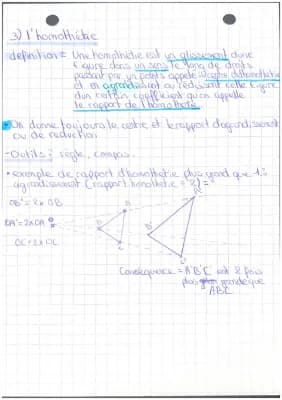 3) l'homothétie
définition = Une homothétie est un glissement d'une
figure dans un sens le long de droits
passant par un points appelé le centre d'homothétie
et en agrandissant ou réduisant cette figure
d'un certain coefficient qu'on appelle
le rapport de l'homothétie
On donne toujours le centre et le rapport d'agrandissement
ou de reduction
-Outils : règle, compas
• exemple de rapport d'homothétie plus grand que 1 =
agrandissement (rapport homothétie = 2) =
OB' = 2 x OB
OA' = 2 x OA
OC' = 2 x OC
A'
A
B
B'
C
C'
Conséquence = A'B'C' est 2 fois
plus grande que
ABC